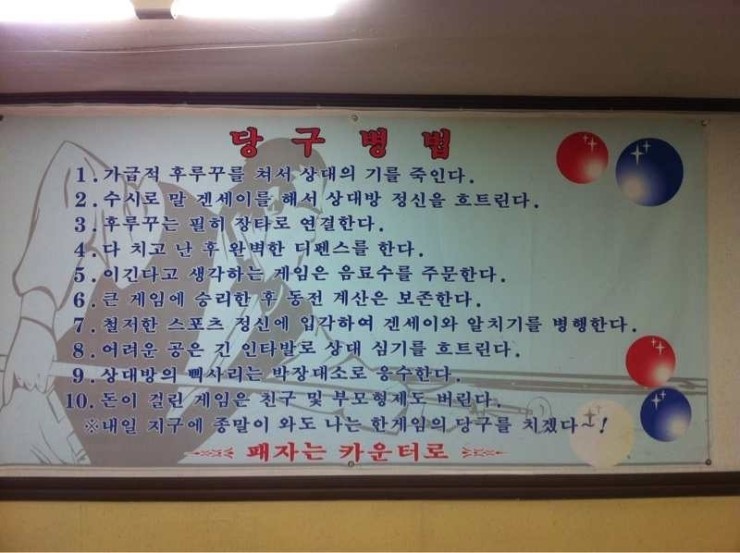 당구병법
1. 가급적 후루꾸를 쳐서 상대의 기를 죽인다.
2. 수시로 말 겐세이를 해서 상대방 정신을 흐트린다.
3. 후루꾸는 필히 장타로 연결한다.
4. 다 치고 난 후 완벽한 디펜스를 한다.
5. 이긴다고 생각하는 게임은 음료수를 주문한다.
6. 큰 게임에 승리한 후 동전 계산은 보존한다.
7. 철저한 스포츠 정신에 입각하여 겐세이와 알치기를 병행한다.
8. 어려운 공은 긴 인타발로 상대 심기를 흐트린다.
9. 상대방의 삑사리는 박장대소로 응수한다.
10. 돈이 걸린 게임은 친구 및 부모형제도 버린다.
※내일 지구에 종말이 와도 나는 한게임의 당구를 치겠다~!
패자는 카운터로